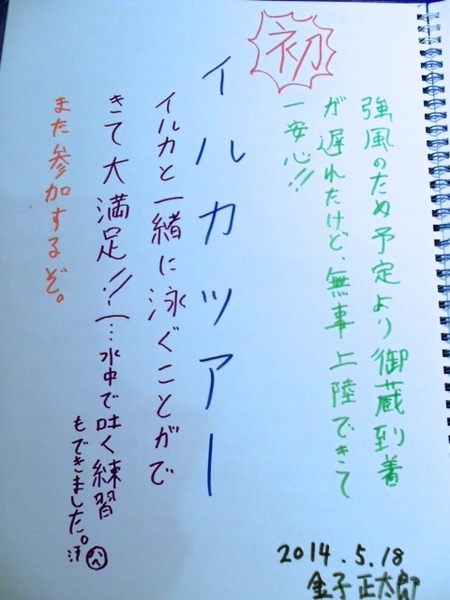 初
イルカツアー
強風のため予定より御蔵到着
が遅れたけど、無事上陸できて
一安心!!
イルカと一緒に泳ぐことがで
きて大満足!!(…水中で吐く練習
もできました。汗
また参加するぞ。
2014.5.18
金子正太郎